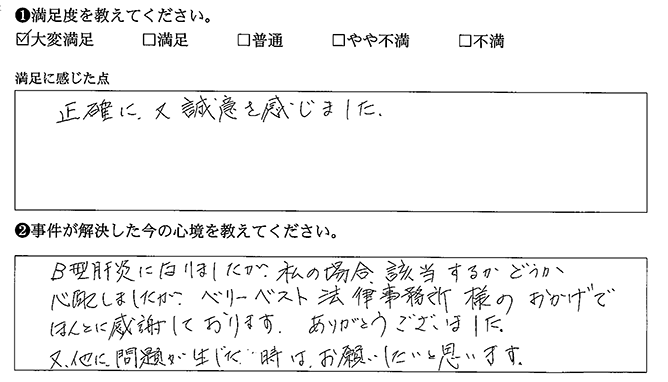 ❶満足度を教えてください。
☑大変満足 □満足 □普通 □やや不満 □不満
満足に感じた点
正確に、又誠意を感じました。
❷事件が解決した今の心境を教えてください。
B型肝炎になりましたが、私の場合、該当するかどうか
心配しましたが、ベリーベスト法律事務所様のおかげで
ほんとに感謝しております。ありがとうございました。
又、他に問題が生じた時は、お願いしたいと思います。